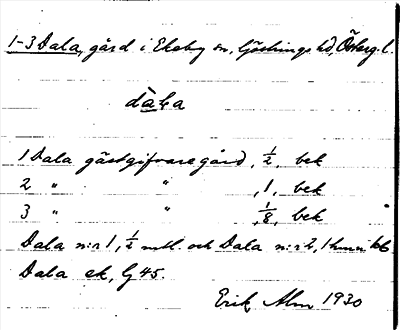 1-3 Dala, gård i Ekeby sn, Göstrings hd, Österg. l.
dàla
1 Dala gästgifvaregård, 1/2, bek
2 " " , 1, bek
3 " " , 1/8, bek
Dala n:r 1, 1/2 mtl. och Dala n:r 2, 1
Dala ek, G 45.
Erik Alm 1930